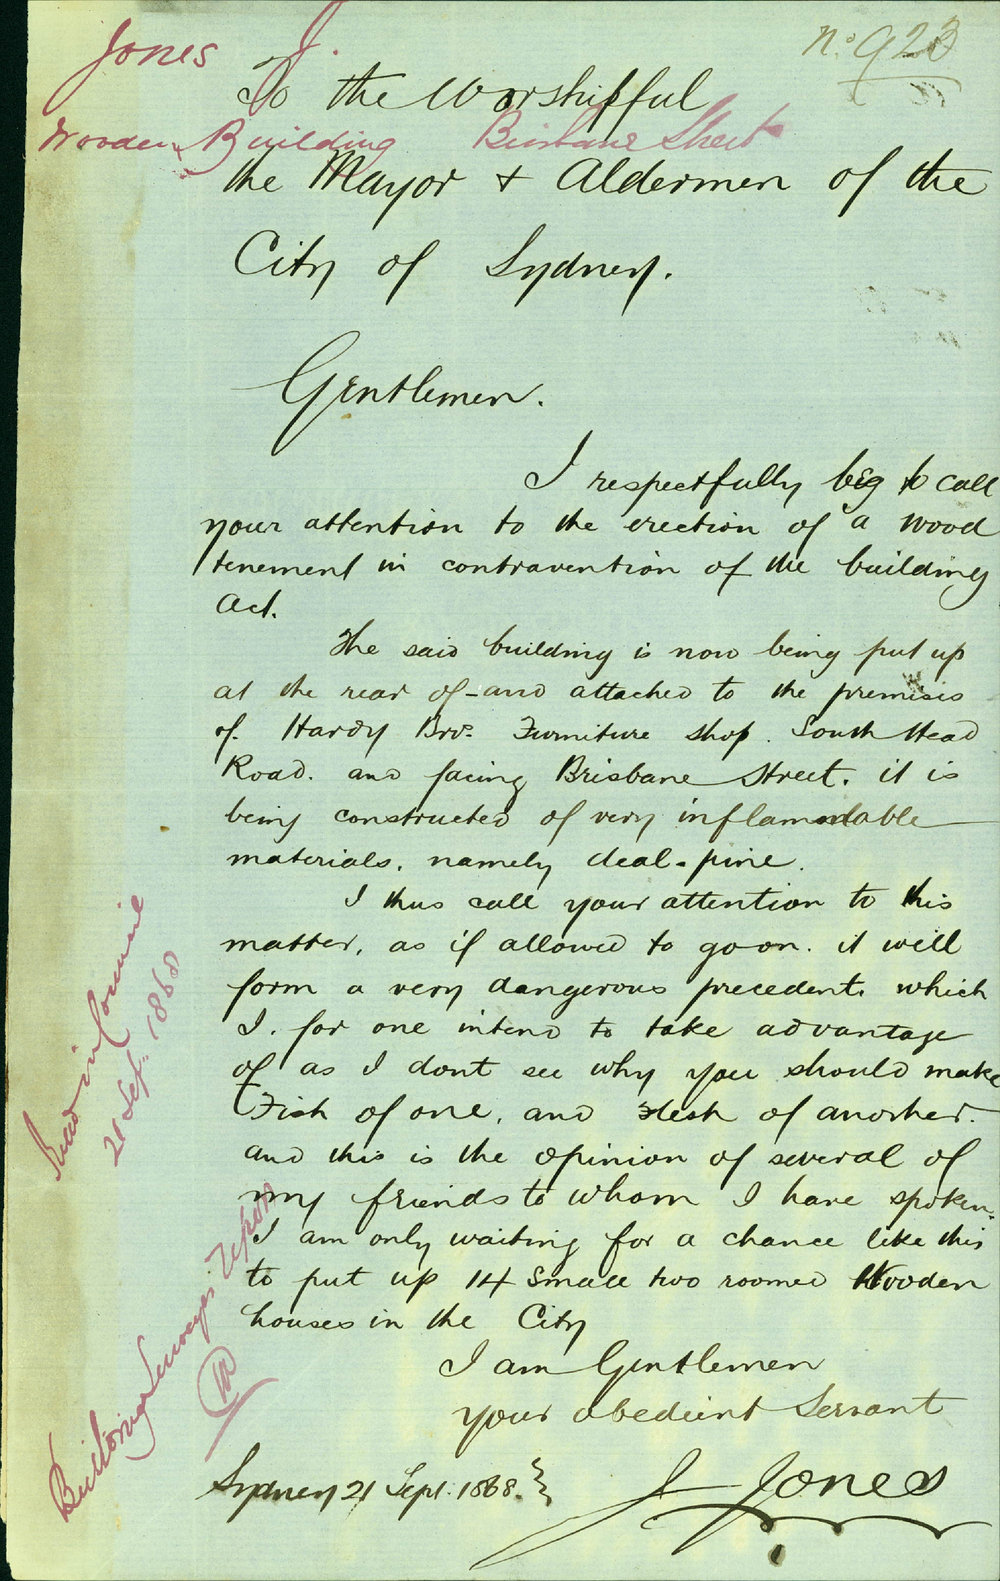 Jones J.
No. 923
To the Worshipful
Wooden Building Brisbane Street
the Mayor & Aldermen of the
City of Sydney.
Gentlemen.
I respectfully beg to call
your attention to the erection of a wood
tenement in contravention of the building
Act.
The said building is now being put up
at the rear of - and attached to the premises
of. Hardy Bros. Furniture shop. South Head
Road. and facing Brisbane Street. it is
being constructed of very inflammable
materials. namely deal-pine.
I thus call your attention to this
matter, as if allowed to go on. it will
form a very dangerous precedent. which
I. for one intend to take advantage
of as I dont see why you should make
Fish of one, and Flesh of another.
and this is the opinion of several of
my friends to whom I have spoken.
I am only waiting for a chance like this
to put up 14 small two roomed Wooden
houses in the City
I am Gentlemen
Your obedient Servant
Sydney 21 Sept. 1868.
J Jones
Read in Council
21 Sept. 1868
Building Surveyor Report